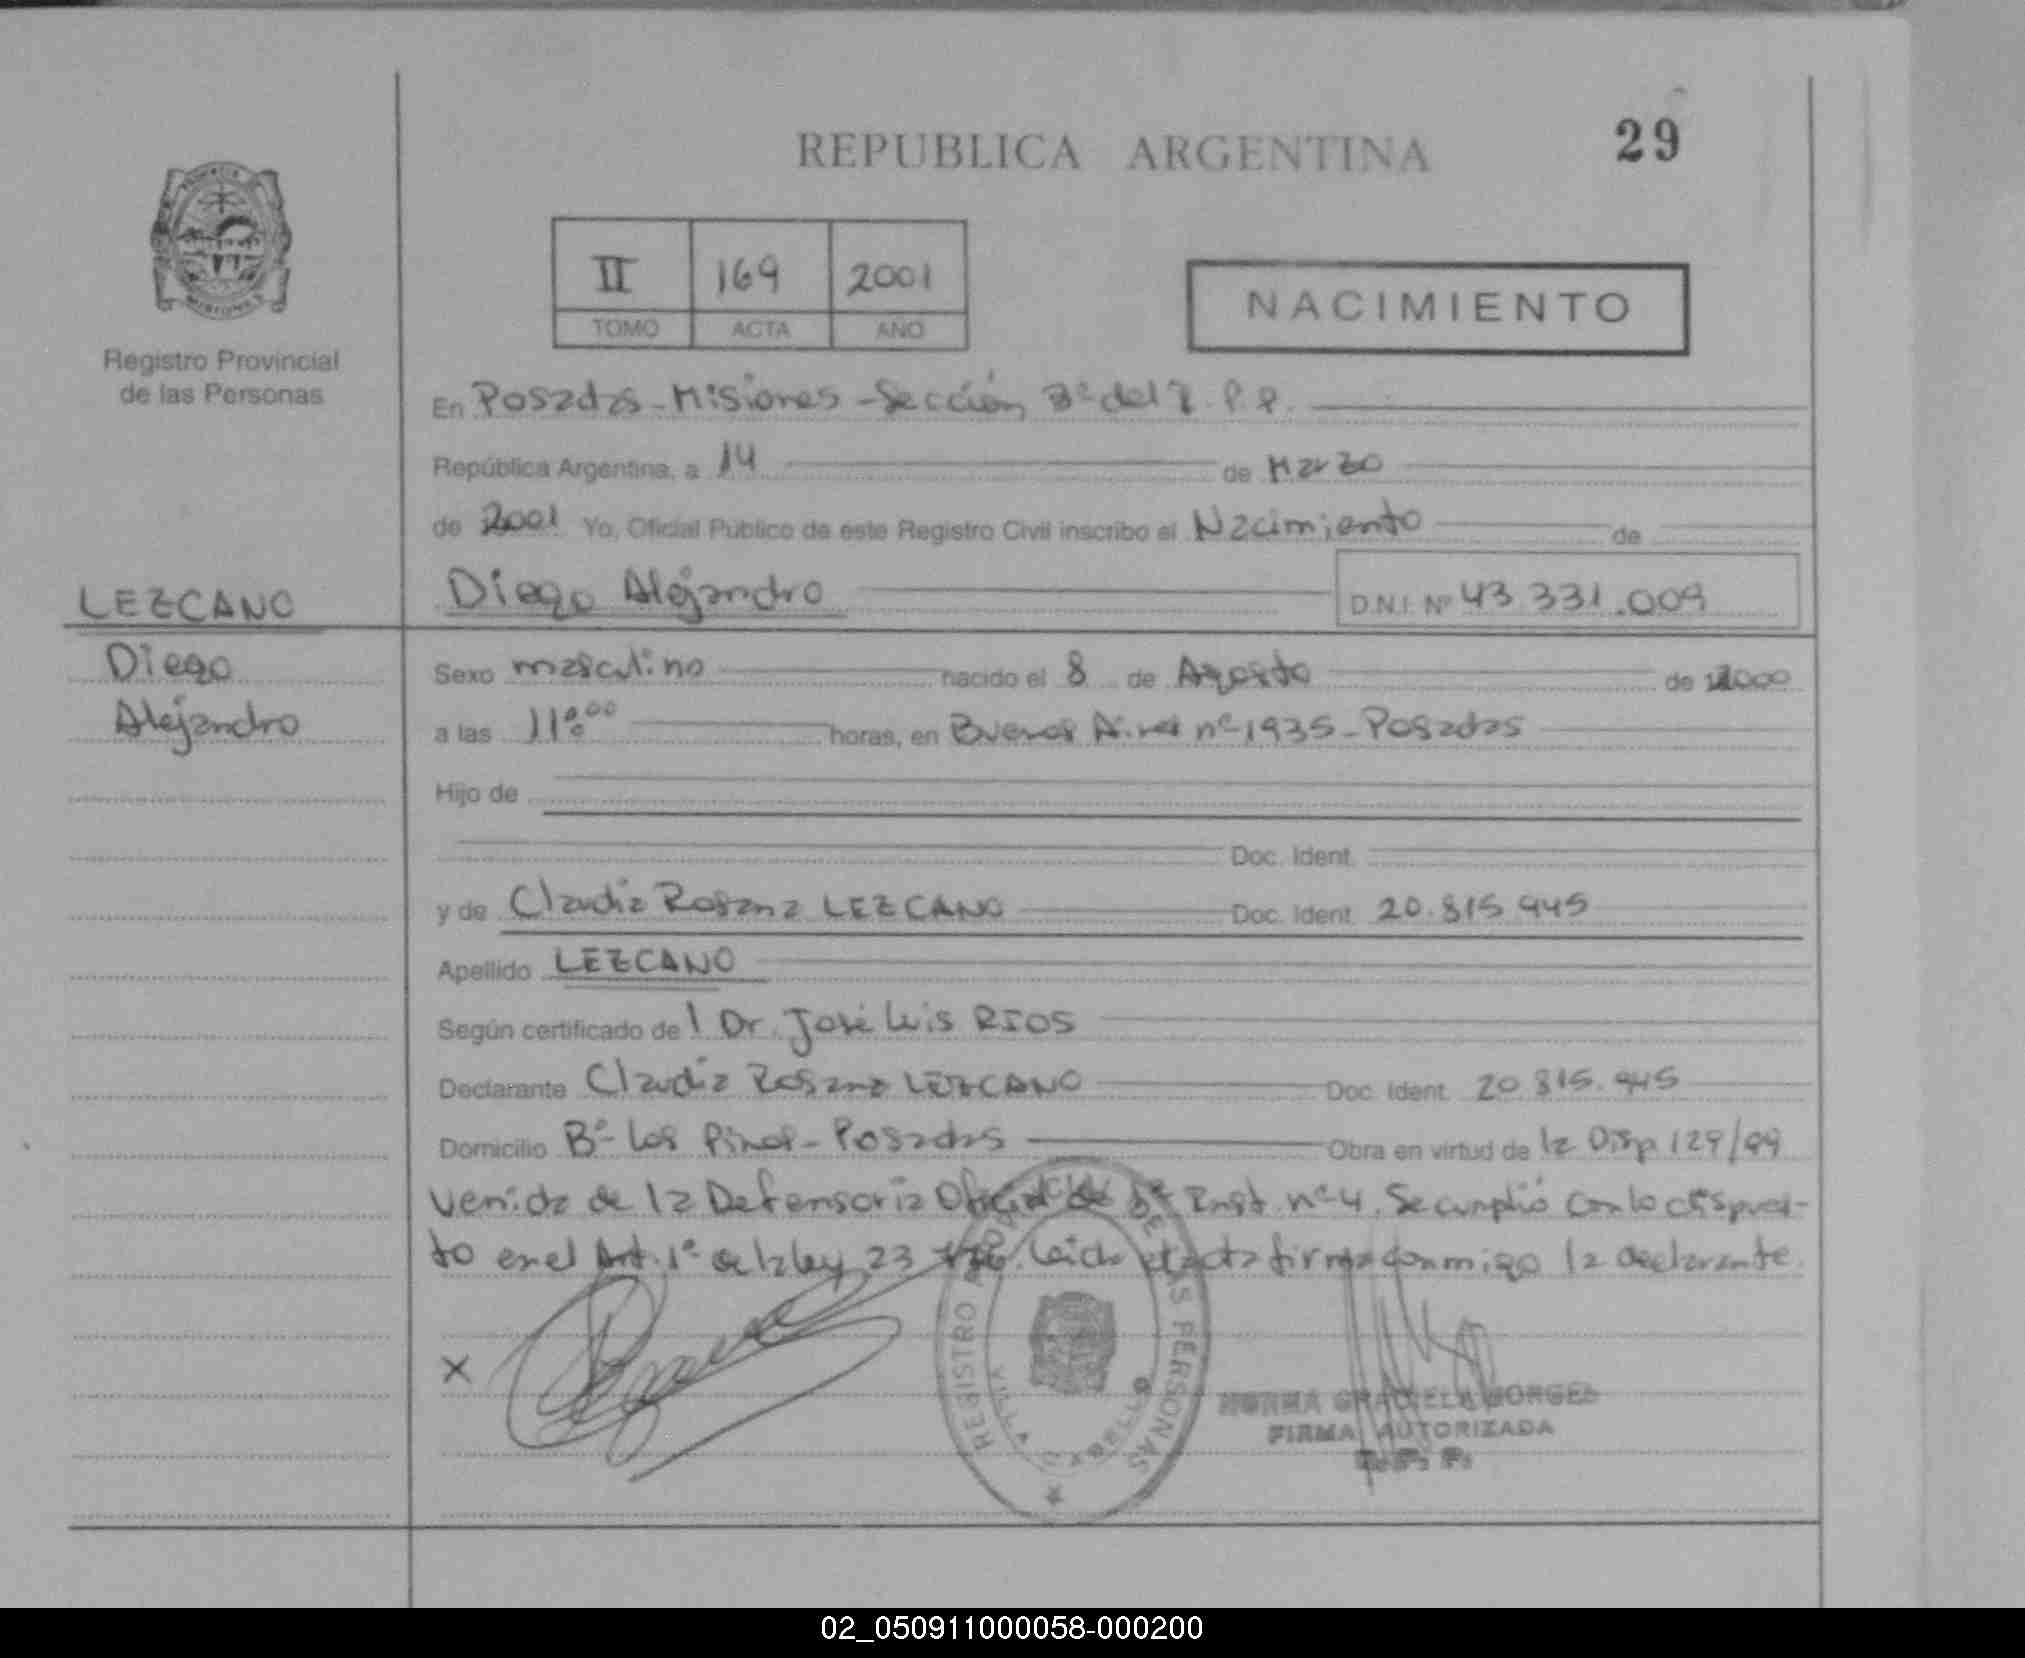 REPUBLICA ARGENTINA
29
II 169 2001
TOMO ACTA AÑO
NACIMIENTO
Registro Provincial
de las Personas
En Posadas - Misiones - Sección 3º del R.P.P.
República Argentina, a 14 de Marzo
de 2001 Yo, Oficial Público de este Registro Civil inscribo el Nacimiento de
LEZCANO
Diego Alejandro
D.N.I. Nº 43.331.009
Diego
Alejandro
Sexo masculino nacido el 8 de Agosto de 2000
a las 11:00 horas, en Buenos Aires nº 1935 - Posadas
Hijo de
Doc. Ident.
y de Claudia Rosana LEZCANO Doc. Ident. 20.815.945
Apellido LEZCANO
Según certificado del Dr. José Luis RIOS
Declarante Claudia Rosana LEZCANO Doc. Ident. 20.815.945
Domicilio Bº Los Pinos - Posadas Obra en virtud de la Disp 129/99
venida de la Defensoria Oficial de Inst. nº 4. Se cumplió con lo dispues-
to en el Art. 1º de la ley 23 Leida el acta firma conmigo la declarante.
X
REGISTRO PROVINCIAL DE LAS PERSONAS
VILLA CABELLO
NORMA GRACIELA BORGES
FIRMA AUTORIZADA
R. P. P.
02_050911000058-000200